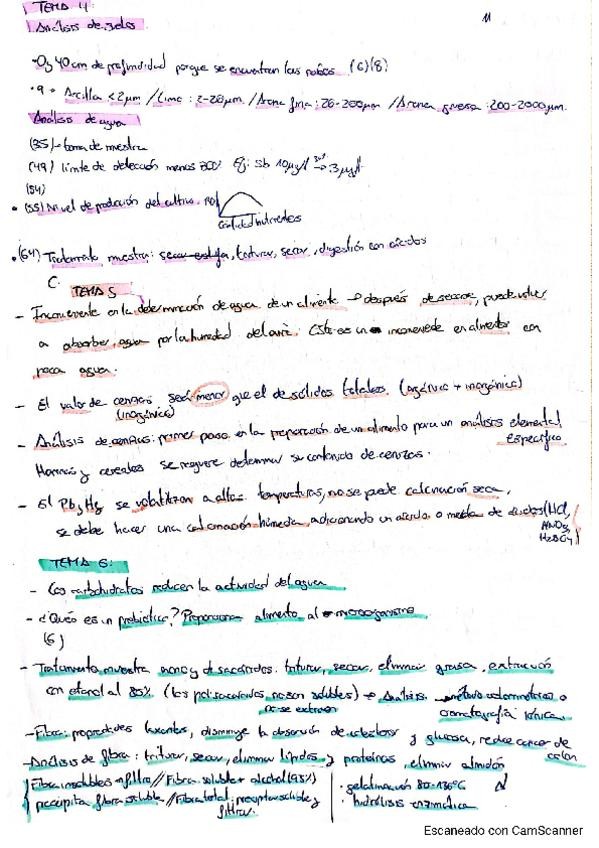 TEMA 4:
11
Análisis de suelos.
· 0 y 40 cm de profundidad porque se encuentran las raíces. (6)(8)
· 9 = Arcilla < 2 μm / Limo: 2-20 μm. / Arena fina: 20-200 μm / Arena gruesa: 200-2000 μm.
Análisis de agua
(35) toma de muestra
(49) límite de detección menos 30% Ej: Sb 10 μg/l → 3 μg/l
(54)
• (55) Nivel de producción del cultivo.
Cantidad nutrientes
• (64) Tratamiento muestra: secar estufa, triturar, secar, digestión con ácidos
C.
TEMA 5
- Inconveniente en la determinación de agua de un alimento → después de secarse, puede volver
a absorber agua por la humedad del aire. Este es un inconveniente en alimentos con
poca agua.
- El valor de cenizas será menor que el de sólidos totales. (orgánica + inorgánica)
(inorgánica)
- Análisis de cenizas: primer paso en la preparación de un alimento para un análisis elemental
específico.
Harinas y cereales se requiere determinar su contenido de cenizas.
- El Pb y Hg se volatilizan a altas temperaturas, no se puede calcinación seca,
se debe hacer una calcinación húmeda, adicionando un ácido o mezcla de ácidos (HCl,
HNO3,
H2SO4)
TEMA 6:
- Los carbohidratos reducen la actividad del agua
- ¿Qué es un prebiótico? Proporciona alimento al microorganismo
(6)
- Tratamiento muestra mono y disacáridos: triturar, secar, eliminar grasa, extracción
con etanol al 85% (los polisacáridos no son solubles) → Análisis. método volumétrico o
no se extraen cromatografía iónica
- Fibra: propiedades laxantes, disminuye la absorción de colesterol y glucosa, reduce cáncer de
colon
- Análisis de fibra: triturar, secar, eliminar lípidos y proteínas, eliminar almidón
Fibra insoluble → filtro // Fibra soluble + alcohol (95%) · gelatinización 80-130ºC
precipita fibra soluble // Fibra total: precipitar soluble y · hidrólisis enzimática
filtrar.
Escaneado con CamScanner